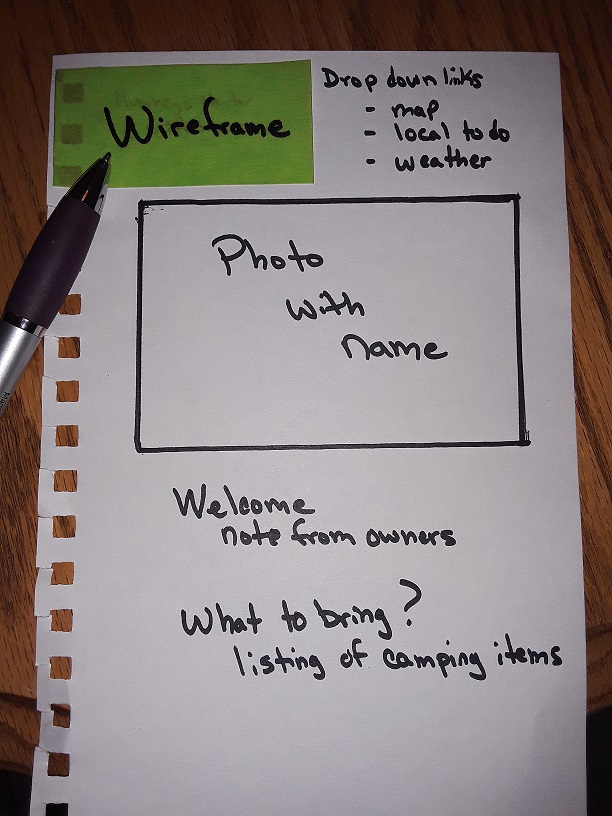 Wireframe
Drop down links
- map
- local to do
- weather
Photo
with
name
Welcome
note from owners
What to bring?
listing of camping items